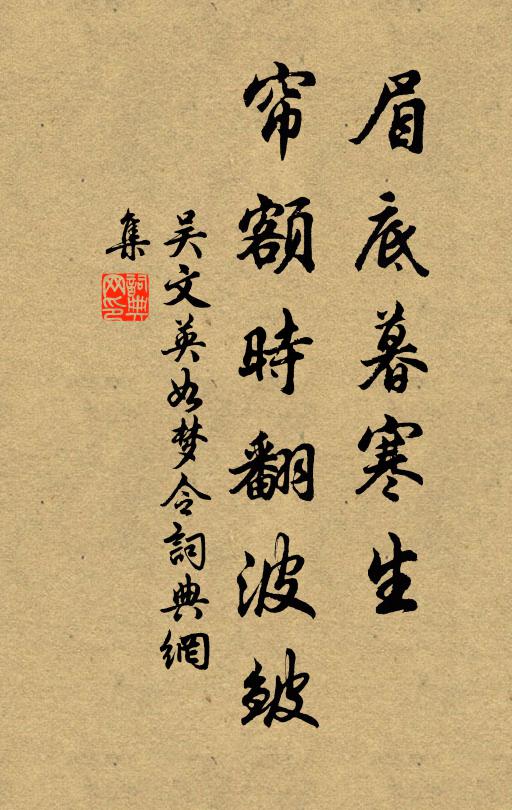 眉底暮寒生
帘额時翻波皱
吴文英如梦令詞典網
集
詞典
网印